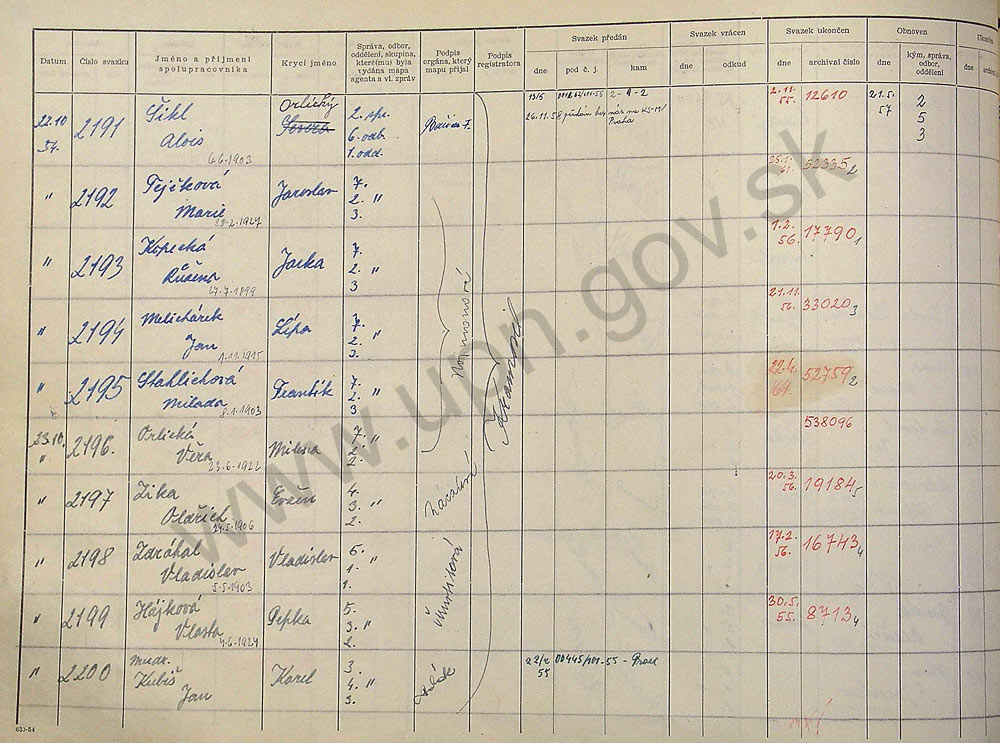 Datum
Číslo svazku
Jméno a příjmení spolupracovníka
Krycí jméno
Správa, odbor, oddělení, skupina, které(mu) byla vydána mapa agenta a vl. zpráv
Podpis orgána, který mapu přijal
Podpis registratora
Svazek předán
dne
pod č. j.
kam
Svazek vrácen
dne
odkud
Svazek ukončen
dne
archivní číslo
Obnoven
dne
kým, správa, odbor, oddělení
22.10 54. 2191 Šikl Alois 6.6.1903 Orlický Severa 2. spr. 6. odb. 1. odd.
13/5 2-4-2
26.11.58 předán bez nás na KS-MV Praha
2.11. 55. 12610 21.5. 57 2 5 3
" 2192 Tejčková Marie 28.2.1927 Jaroslav 7. 2. " 3. 25.1. 61. 52335 2
" 2193 Kopecká Růžena 27.7.1899 Jarka 7. 2. " 3 1.2. 56. 17790 1
" 2194 Melichárek Jan 1.11.1915 Lípa 7. 2. " 3. 21.11. 56. 33020 3
" 2195 Stahlichová Milada 8.1.1903 František 7. 2. " 3 22.4. 61. 52759 2
23.10. " 2196. Orlická Věra 23.6.1922 Milena 7. 2. " 2. 538096
" 2197 Zika Oldřich 24.5.1906 Evžen 4. 3. " 2. 20.3. 56. 19184 5
" 2198 Zdráhal Vladislav 5.5.1903 Vladislav 5. 1. " 1. 17.2. 56. 16743 4
" 2199 Hájková Vlasta 4.6.1924 Pepka 5. 3. " 2. 30.5. 55. 8713 4
" 2200 Mudr. Kubiš Jan Karel 3. 4. " 3. 22/2 55 00445/101-55 -
www.upn.gov.sk
630-54